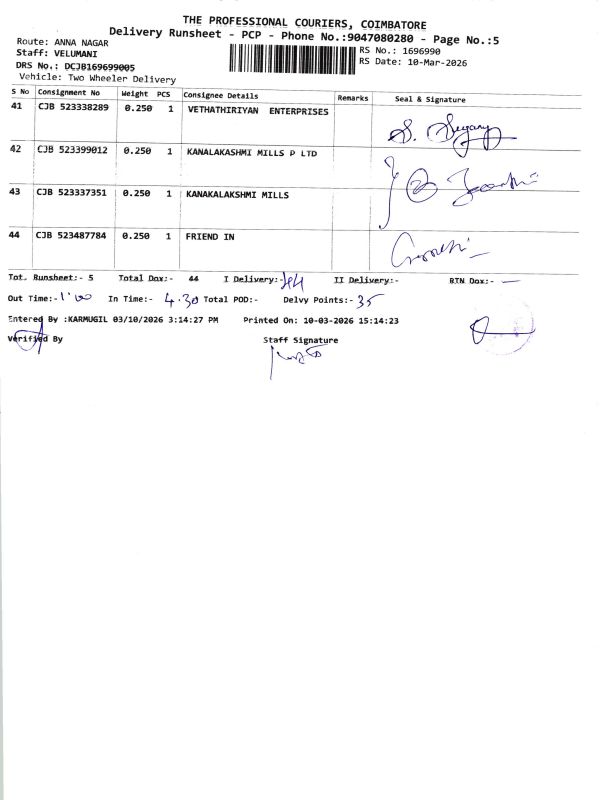 THE PROFESSIONAL COURIERS, COIMBATORE
Delivery Runsheet - PCP - Phone No.:9047080280 - Page No.:5
Route: ANNA NAGAR
Staff: VELUMANI
DRS No.: DCJB169699005
Vehicle: Two Wheeler Delivery
RS No.: 1696990
RS Date: 10-Mar-2026
S No Consignment No Weight PCS Consignee Details Remarks Seal & Signature
41 CJB 523338289 0.250 1 VETHATHIRIYAN ENTERPRISES
42 CJB 523399012 0.250 1 KANALAKASHMI MILLS P LTD
43 CJB 523337351 0.250 1 KANAKALAKSHMI MILLS
44 CJB 523487784 0.250 1 FRIEND IN
Tot. Runsheet:- 5 Total Dox:- 44 I Delivery:- 44 II Delivery:- RTN Dox:- —
Out Time:- 1:00 In Time:- 4.30 Total POD:- Delvy Points:- 35
Entered By :KARMUGIL 03/10/2026 3:14:27 PM Printed On: 10-03-2026 15:14:23
Verified By Staff Signature